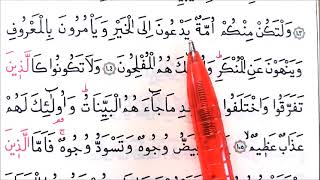 ١٠٣ وَلْتَكُنْ مِنْكُمْ اُمَّةٌ يَدْعُونَ اِلَى الْخَيْرِ وَيَأْمُرُونَ بِالْمَعْرُوفِ
وَيَنْهَوْنَ عَنِ الْمُنْكَرِ وَ هُمُ الْمُفْلِحُونَ ١٠٤ وَلَا تَكُونُوا كَالَّذِينَ
تَفَرَّقُوا وَاخْتَلَفُوا مَا جَاءَهُمُ الْبَيِّنَاتُ وَاُولٰئِكَ لَهُمْ
عَذَابٌ عَظِيمٌ ١٠٥ وُجُوهٌ وَتَسْوَدُّ وُجُوهٌ فَاَمَّا الَّذِينَ